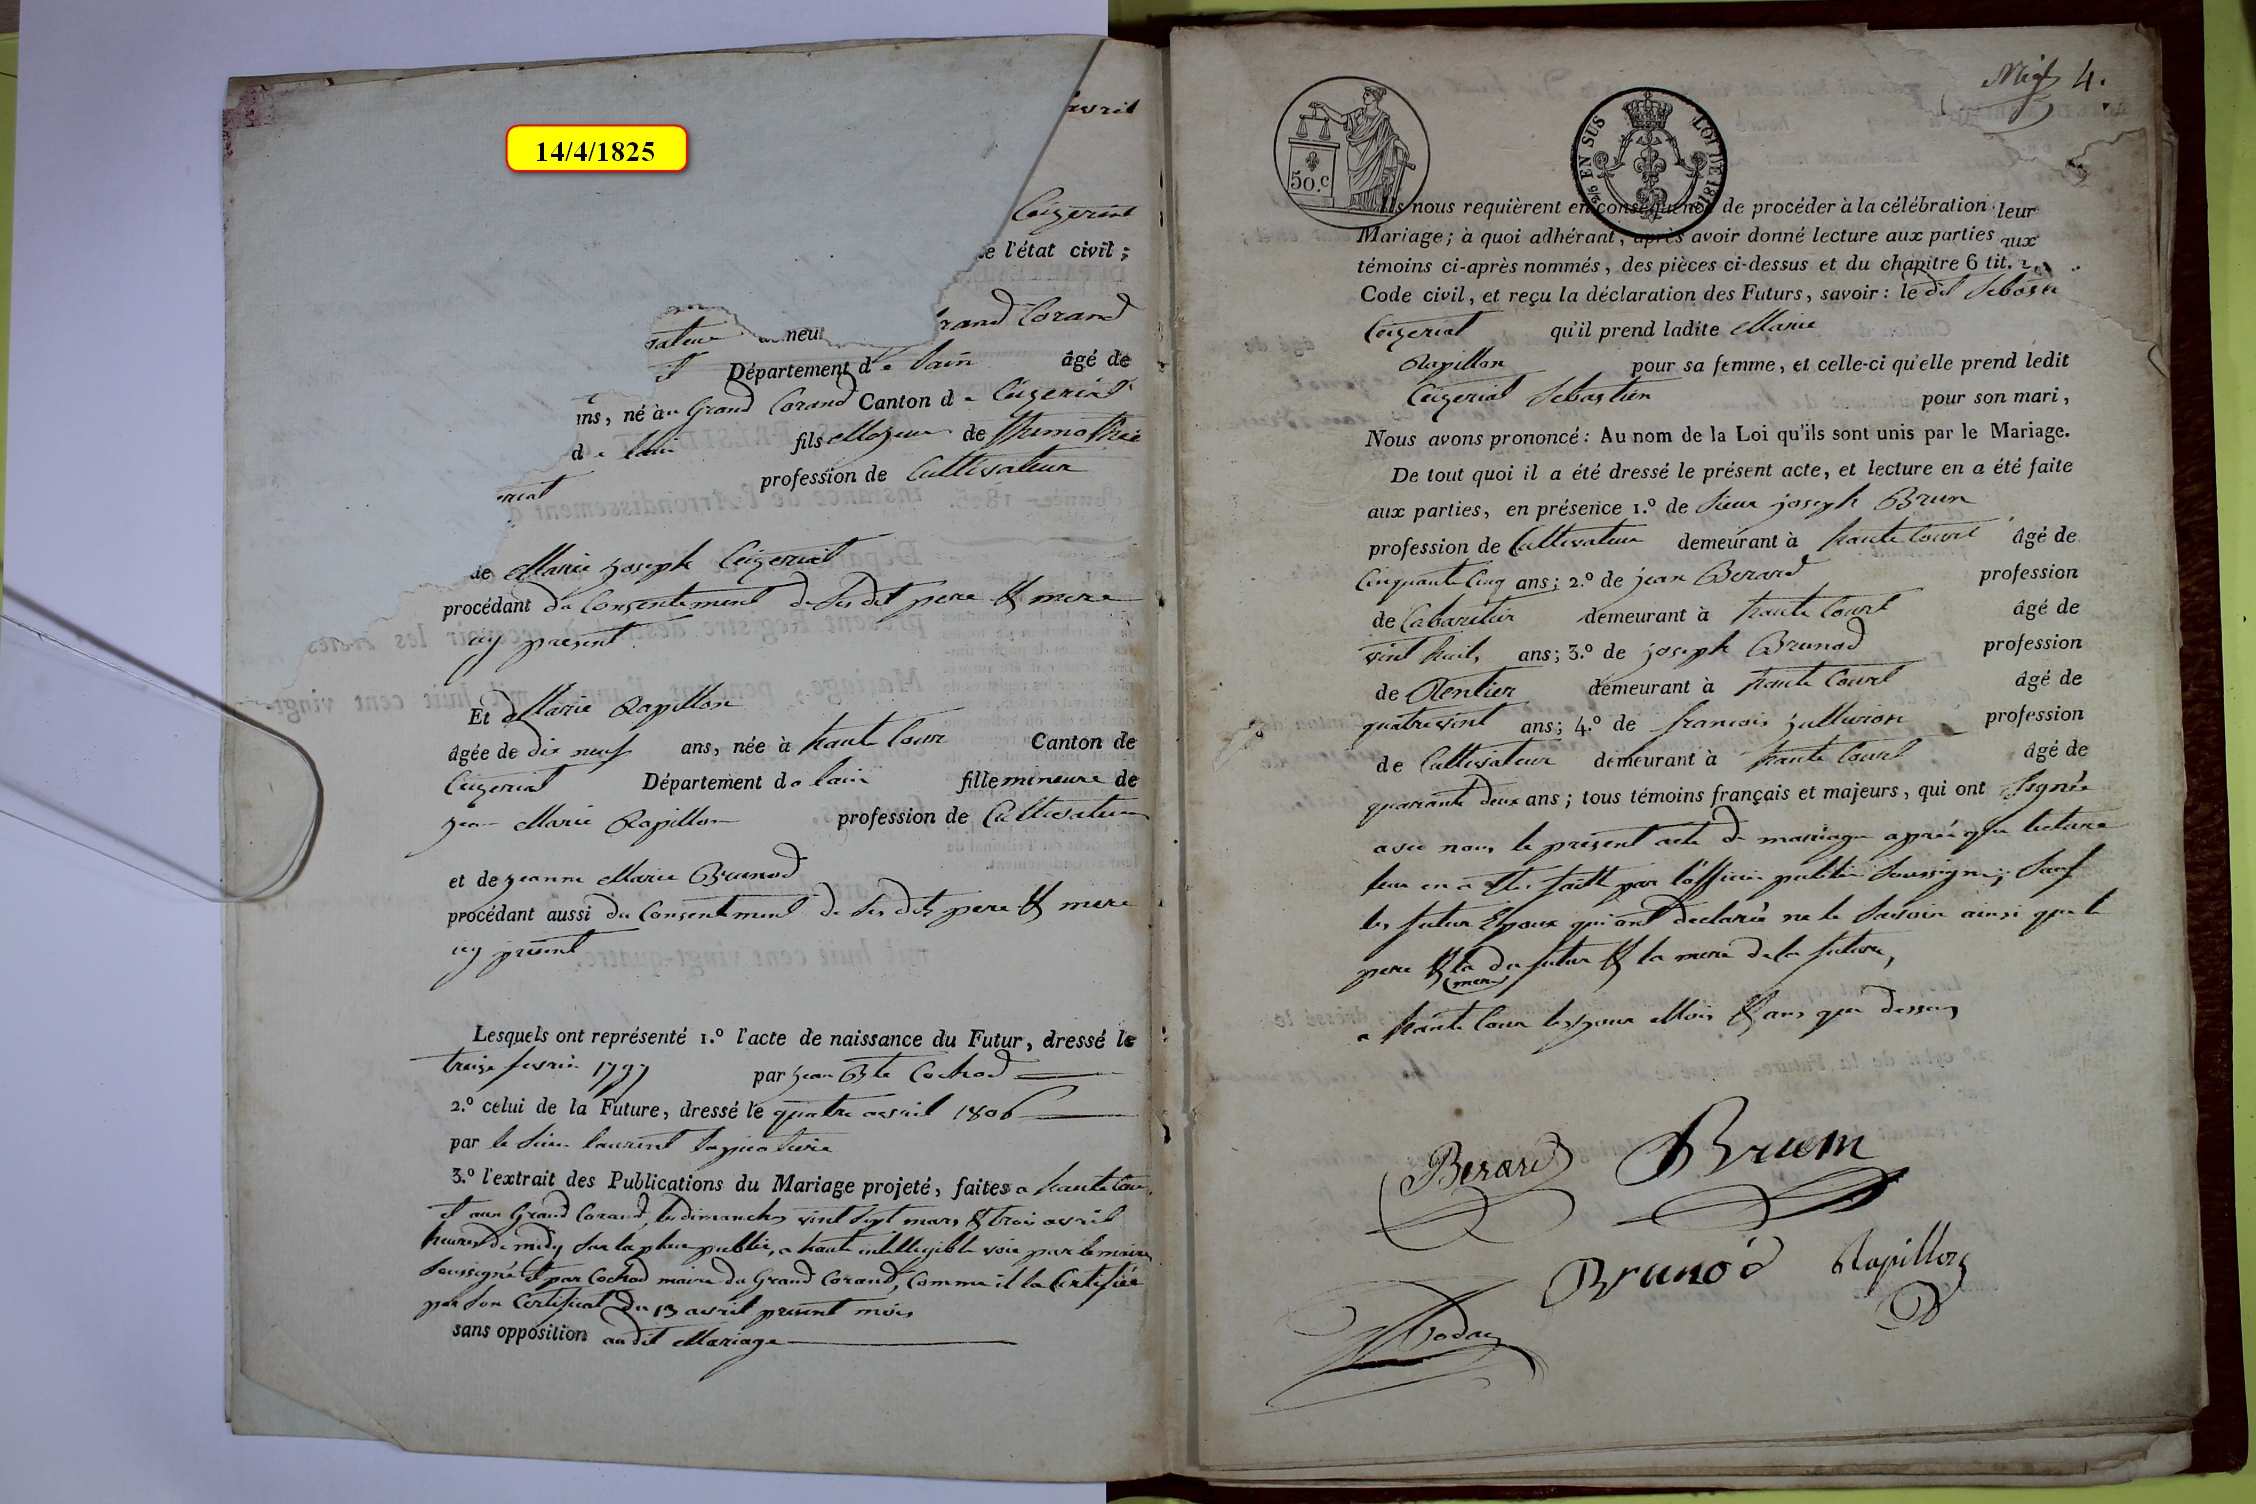 14/4/1825
avril
Ceizeriat
de l'état civil ;
Grand Corand
neur
Département de lain âgé de
ans, né au Grand Corand Canton de Ceizeriat
de lain fils Majeur de
profession de Cultivateur
eriat
de Marie joseph Ceizeriat
procédant du Consentement de ses dit pere & mere
icy present
Et Marie Rapillon
âgée de dix neuf ans, née à haute Cour Canton de
Ceizeriat Département de lain fille mineure de
jean Marie Rapillon profession de Cultivateur
et de jeanne Marie Brunod
procédant aussi du Consentement de ses dts pere & mere
icy présent
Lesquels ont représenté 1.º l'acte de naissance du Futur, dressé le
treize fevrier 1797 par jean Bte Cochod
2.º celui de la Future, dressé le quatre avril 1806
par le sieur laurent
3.º l'extrait des Publications du Mariage projeté, faites a haute Cour
et au Grand Corand, les dimanches vint sept mars & trois avril
heures de midy sur la place public, a haute intelligible voie par le maire
soussigné et par Cochod maire du Grand Corand, Comme il la Certifiée
par son Certificat du 13 avril present mois
sans opposition audit Mariage
50.c
2/6 EN SUS LOI DE 181
4.
Ils nous requièrent en conséquence de procéder à la célébration leur
Mariage ; à quoi adhérant, après avoir donné lecture aux parties aux
témoins ci-après nommés, des pièces ci-dessus et du chapitre 6 tit.
Code civil, et reçu la déclaration des Futurs, savoir : le dit Sebastien
Ceizeriat qu'il prend ladite Marie
Rapillon pour sa femme, et celle-ci qu'elle prend ledit
Ceizeriat Sebastien pour son mari,
Nous avons prononcé : Au nom de la Loi qu'ils sont unis par le Mariage.
De tout quoi il a été dressé le présent acte, et lecture en a été faite
aux parties, en présence 1.º de sieur joseph Brun
profession de Cultivateur demeurant à haute Court âgé de
Cinquante Cinq ans ; 2.º de jean Berard profession
de Cabaretier demeurant à haute Court âgé de
vint huit ans ; 3.º de joseph Brunod profession
de Rentier demeurant à haute Court âgé de
quatrevint ans ; 4.º de francois profession
de Cultivateur demeurant à haute Court âgé de
quarante deux ans ; tous témoins français et majeurs, qui ont signée
avec nous le présent acte de mariage après que lecture
leur en a faitte par l'officier public soussigné, sauf
les futur Epoux qui ont declarée ne le savoir ainsi que le
pere & la mere du futur & la mere de la future,
a haute Cour les jour Mois & ans que dessus
Berard Brun
Brunod Rapillon